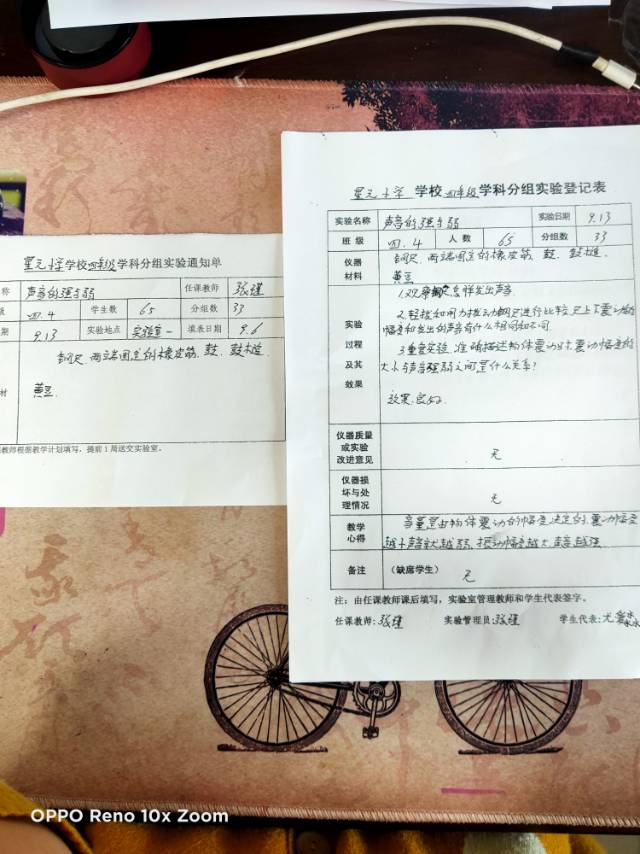 星元小学学校四年级学科分组实验通知单
称 声音的强与弱 任课教师 张瑾
级 四.4 学生数 65 分组数 33
期 9.13 实验地点 实验室一 填表日期 9.6
钢尺 两端固定的橡皮筋、鼓、鼓槌
材 黄豆
教师根据教学计划填写，提前1周送交实验室。
星元小学 学校四年级学科分组实验登记表
实验名称 声音的强与弱 实验日期 9.13
班 级 四.4 人 数 65 分组数 33
仪器 钢尺、两端固定的橡皮筋、鼓、鼓槌、
材料 黄豆
怎样发出声音
2.轻拨和用力拨动钢尺进行比较尺上下震动的
幅度和发出的声音有什么相同和不同
实验
过程
3.重复实验,准确描述物体震动时震动幅度的
及其 大小与声音强弱之间是什么关系?
效果
效果:良好
仪器质量
或实验
改进意见 无
仪器损
坏与处
理情况 无
教学 音量是由物体震动的幅度决定的,震动幅度
心得 越小声音就越弱,振动幅度越大声音越强
备注 （缺席学生） 无
注：由任课教师课后填写，实验室管理教师和学生代表签字。
任课教师:张瑾 实验管理员:张瑾 学生代表:尤
OPPO Reno 10x Zoom